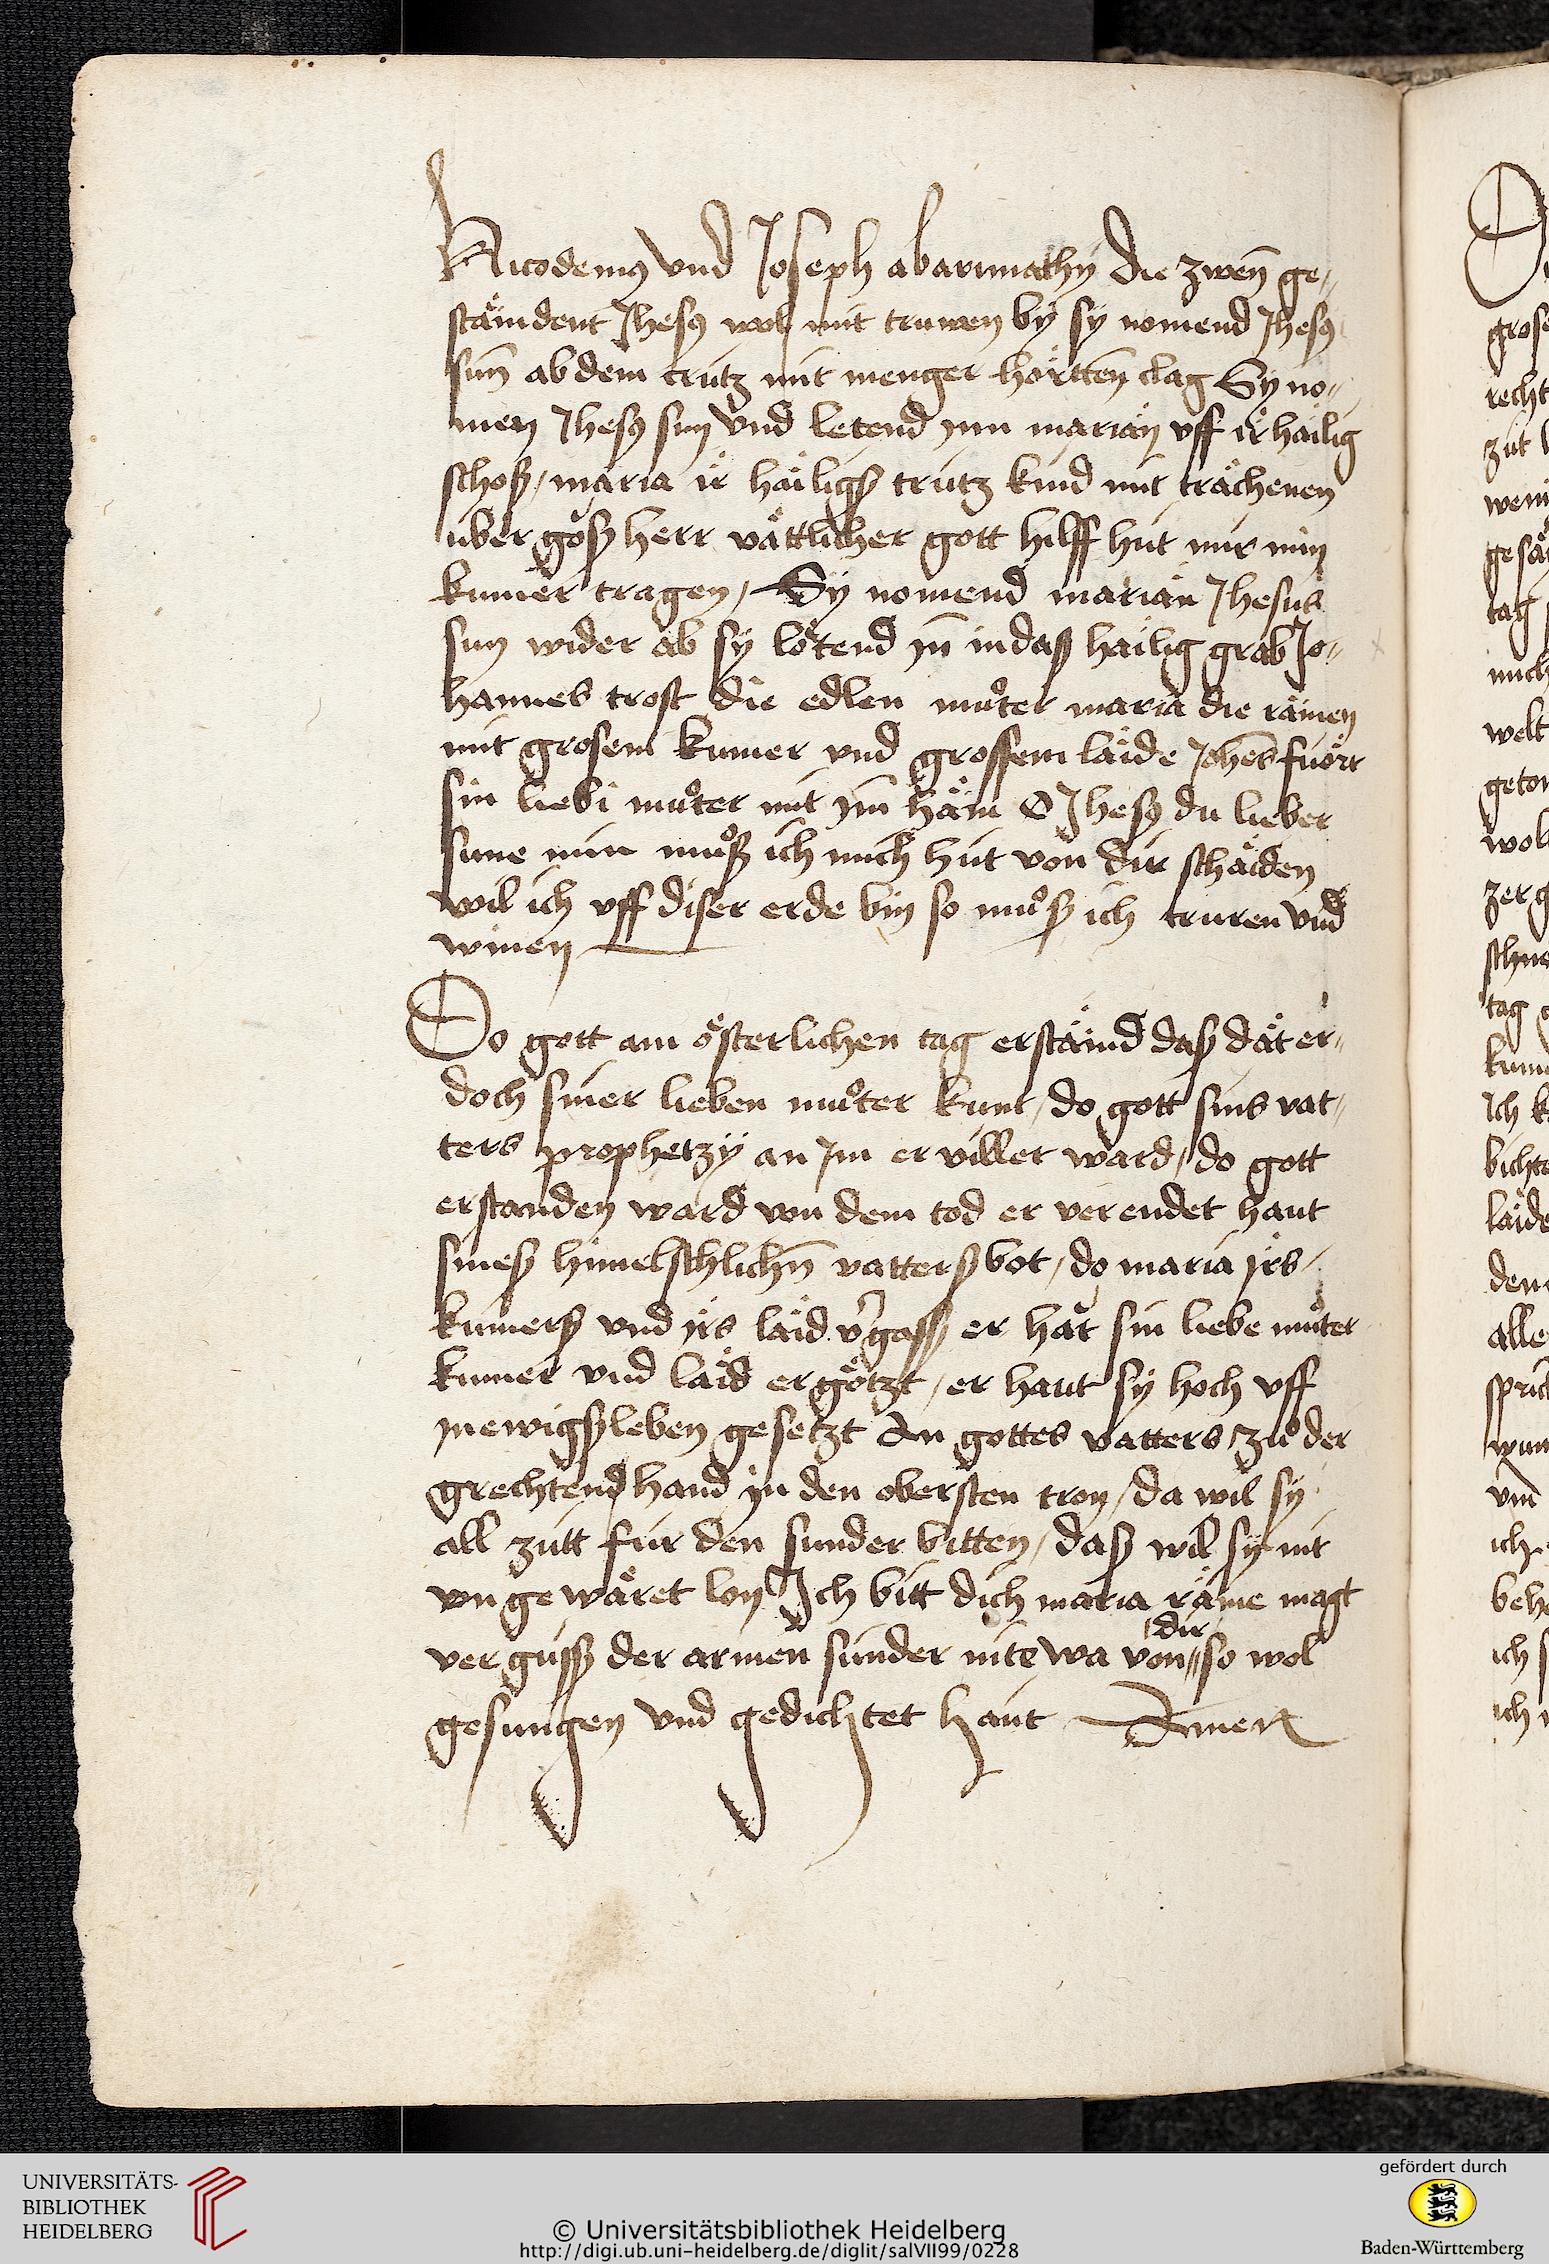 Nicodemꝰ vnd Joseph abarimathÿ die zwen̄ ge„
staͤindent Jhesꝰ wol mit truwen bÿ sÿ nomend Jhesꝰ
sun̄ ab dem crutz mit menger hoͤrtten clag Sÿ no„
men Jhesꝰ sun vnd letend ym marian vff ir haͤilig
schoß / maria ir haͤiligß crutz kind mit traͤchenen
uber goß herr vaͤttlicher gott hilff hut mir min
kumer tragen / Sÿ nomend marian Jhesus
sun wider ab sÿ loͤtend yn̄ in daß haͤilig grab Jo„
hannes trost die edlen muͦter maria die raͤinen
mit grosem kumer vnd grossem laͤide Joh̄es fuͦrt
sin liebi muͦter mit ym̄ haͤim O Jhesꝰ du lieber
sune nun muͦß ich mich hut von dir schaͤiden
wil ich vff diser erde bin so muͦß ich truren vnd
winen
Do gott am oͤsterlichen tag erstaͤind daß daͤt er„
doch siner lieben muͦter kunt / do gott sins vat„
ters prophetzÿ an Jm er viller ward / do gott
erstanden ward von dem tod er verendet haut
sineß himelschlichn̄ vatterß bot / do maria yrs
kumerß vnd yrs laͤid v̓gass er haͤt sin liebe muͦter
kumer vnd laͤid ergoͤtzt / er haut sÿ hoch vff
in ewigß leben gesetzt An gottes vatters zuͦ der
grechtend hand in den obersten tron / da wil sÿ
all zutt fur den sunder bitten / daß wil sÿ nit
vn gewaͤret lon Ich bitt dich maria raͤine magt
dir
ver guss der armen sunder nit wa von„ so wol
gesungen vnd gedichtet haut Amen
gros
recht
zut
weni
gesaͤ
tag
mich
welt
geton
wol
zer g
tag
kum
Ich k
bicht
laͤide
den
alle
spric
vm̄
ich
beh
ich
ich
UNIVERSITÄTS-
BIBLIOTHEK
HEIDELBERG
© Universitätsbibliothek Heidelberg
http://digi.ub.uni-heidelberg.de/diglit/salVII99/0228
gefördert durch
Baden-Württemberg